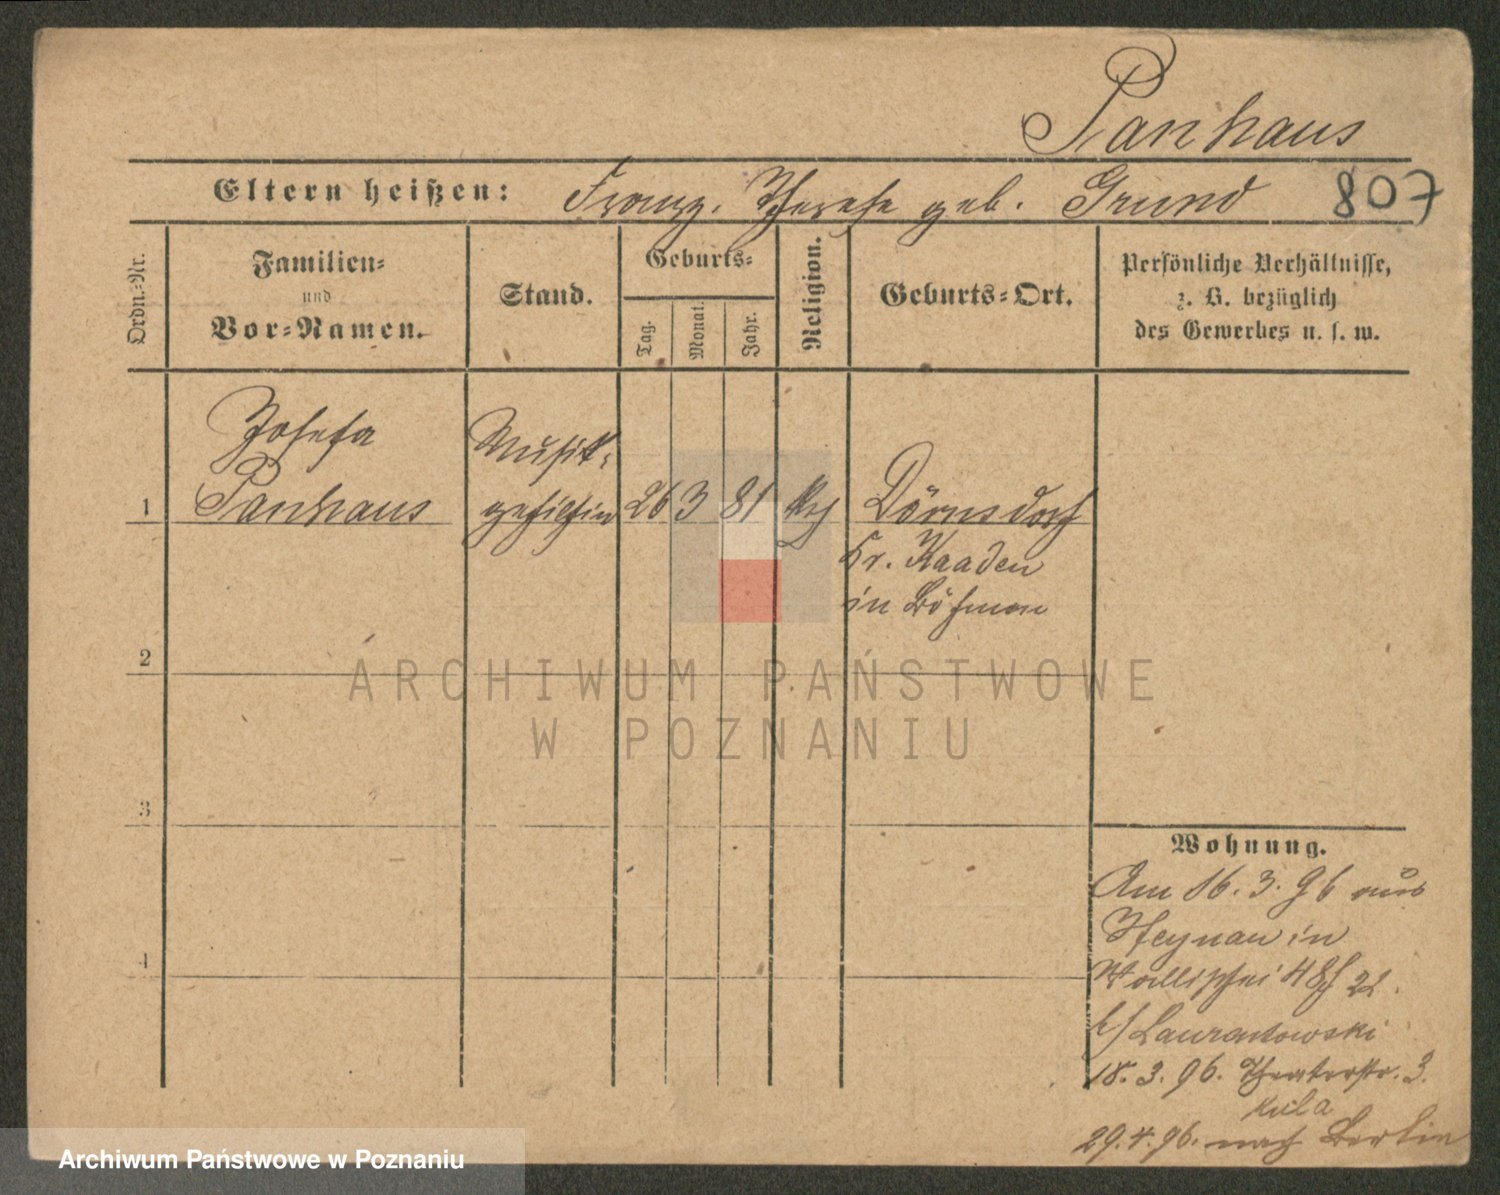 Panhaus
Eltern heißen: Franz. Therese geb. Grund 807
Ordn.-Nr.
Familien-
und
Vor-Namen.
Stand.
Geburts-
Tag.
Monat.
Jahr.
Religion.
Geburts-Ort.
Persönliche Verhältnisse,
z. B. bezüglich
des Gewerbes u. s. w.
Josefa
Musik-
1 Panhaus gehilfin 26 3 81 Dörnsdorf
Kr. Kaaden
in Böhmen
2
ARCHIWUM PAŃSTWOWE
W POZNANIU
3
Wohnung.
Am 16. 3. 96 aus
Heynau in
Wallischei 48/
b/ Laurentowski
18. 3. 96. Theaterstr. 3.
29. 4. 96. nach Berlin
4
Archiwum Państwowe w Poznaniu